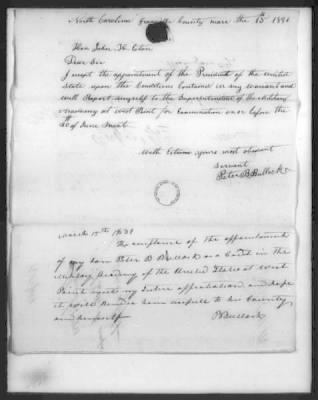 North Carolina Granville County march the 15th 1831
Hon John H. Eaton
Dear Sir
I accept the appointment of the President of the united
State upon the Conditions Contained in my warrant and
will Report myself to the Superintendent of the military
academy at West Point for Examination on or before the
of June next.
With Esteem yours most obedient
servant
Peter B Bullock
March 15th 1831
The acceptance of the appointment
of my son Peter B Bullock as a Cadet in the
Military Academy of the United States at West
Point meets my Entire approbation and hope
it will Render him useful to his Country
and himself
Bullock